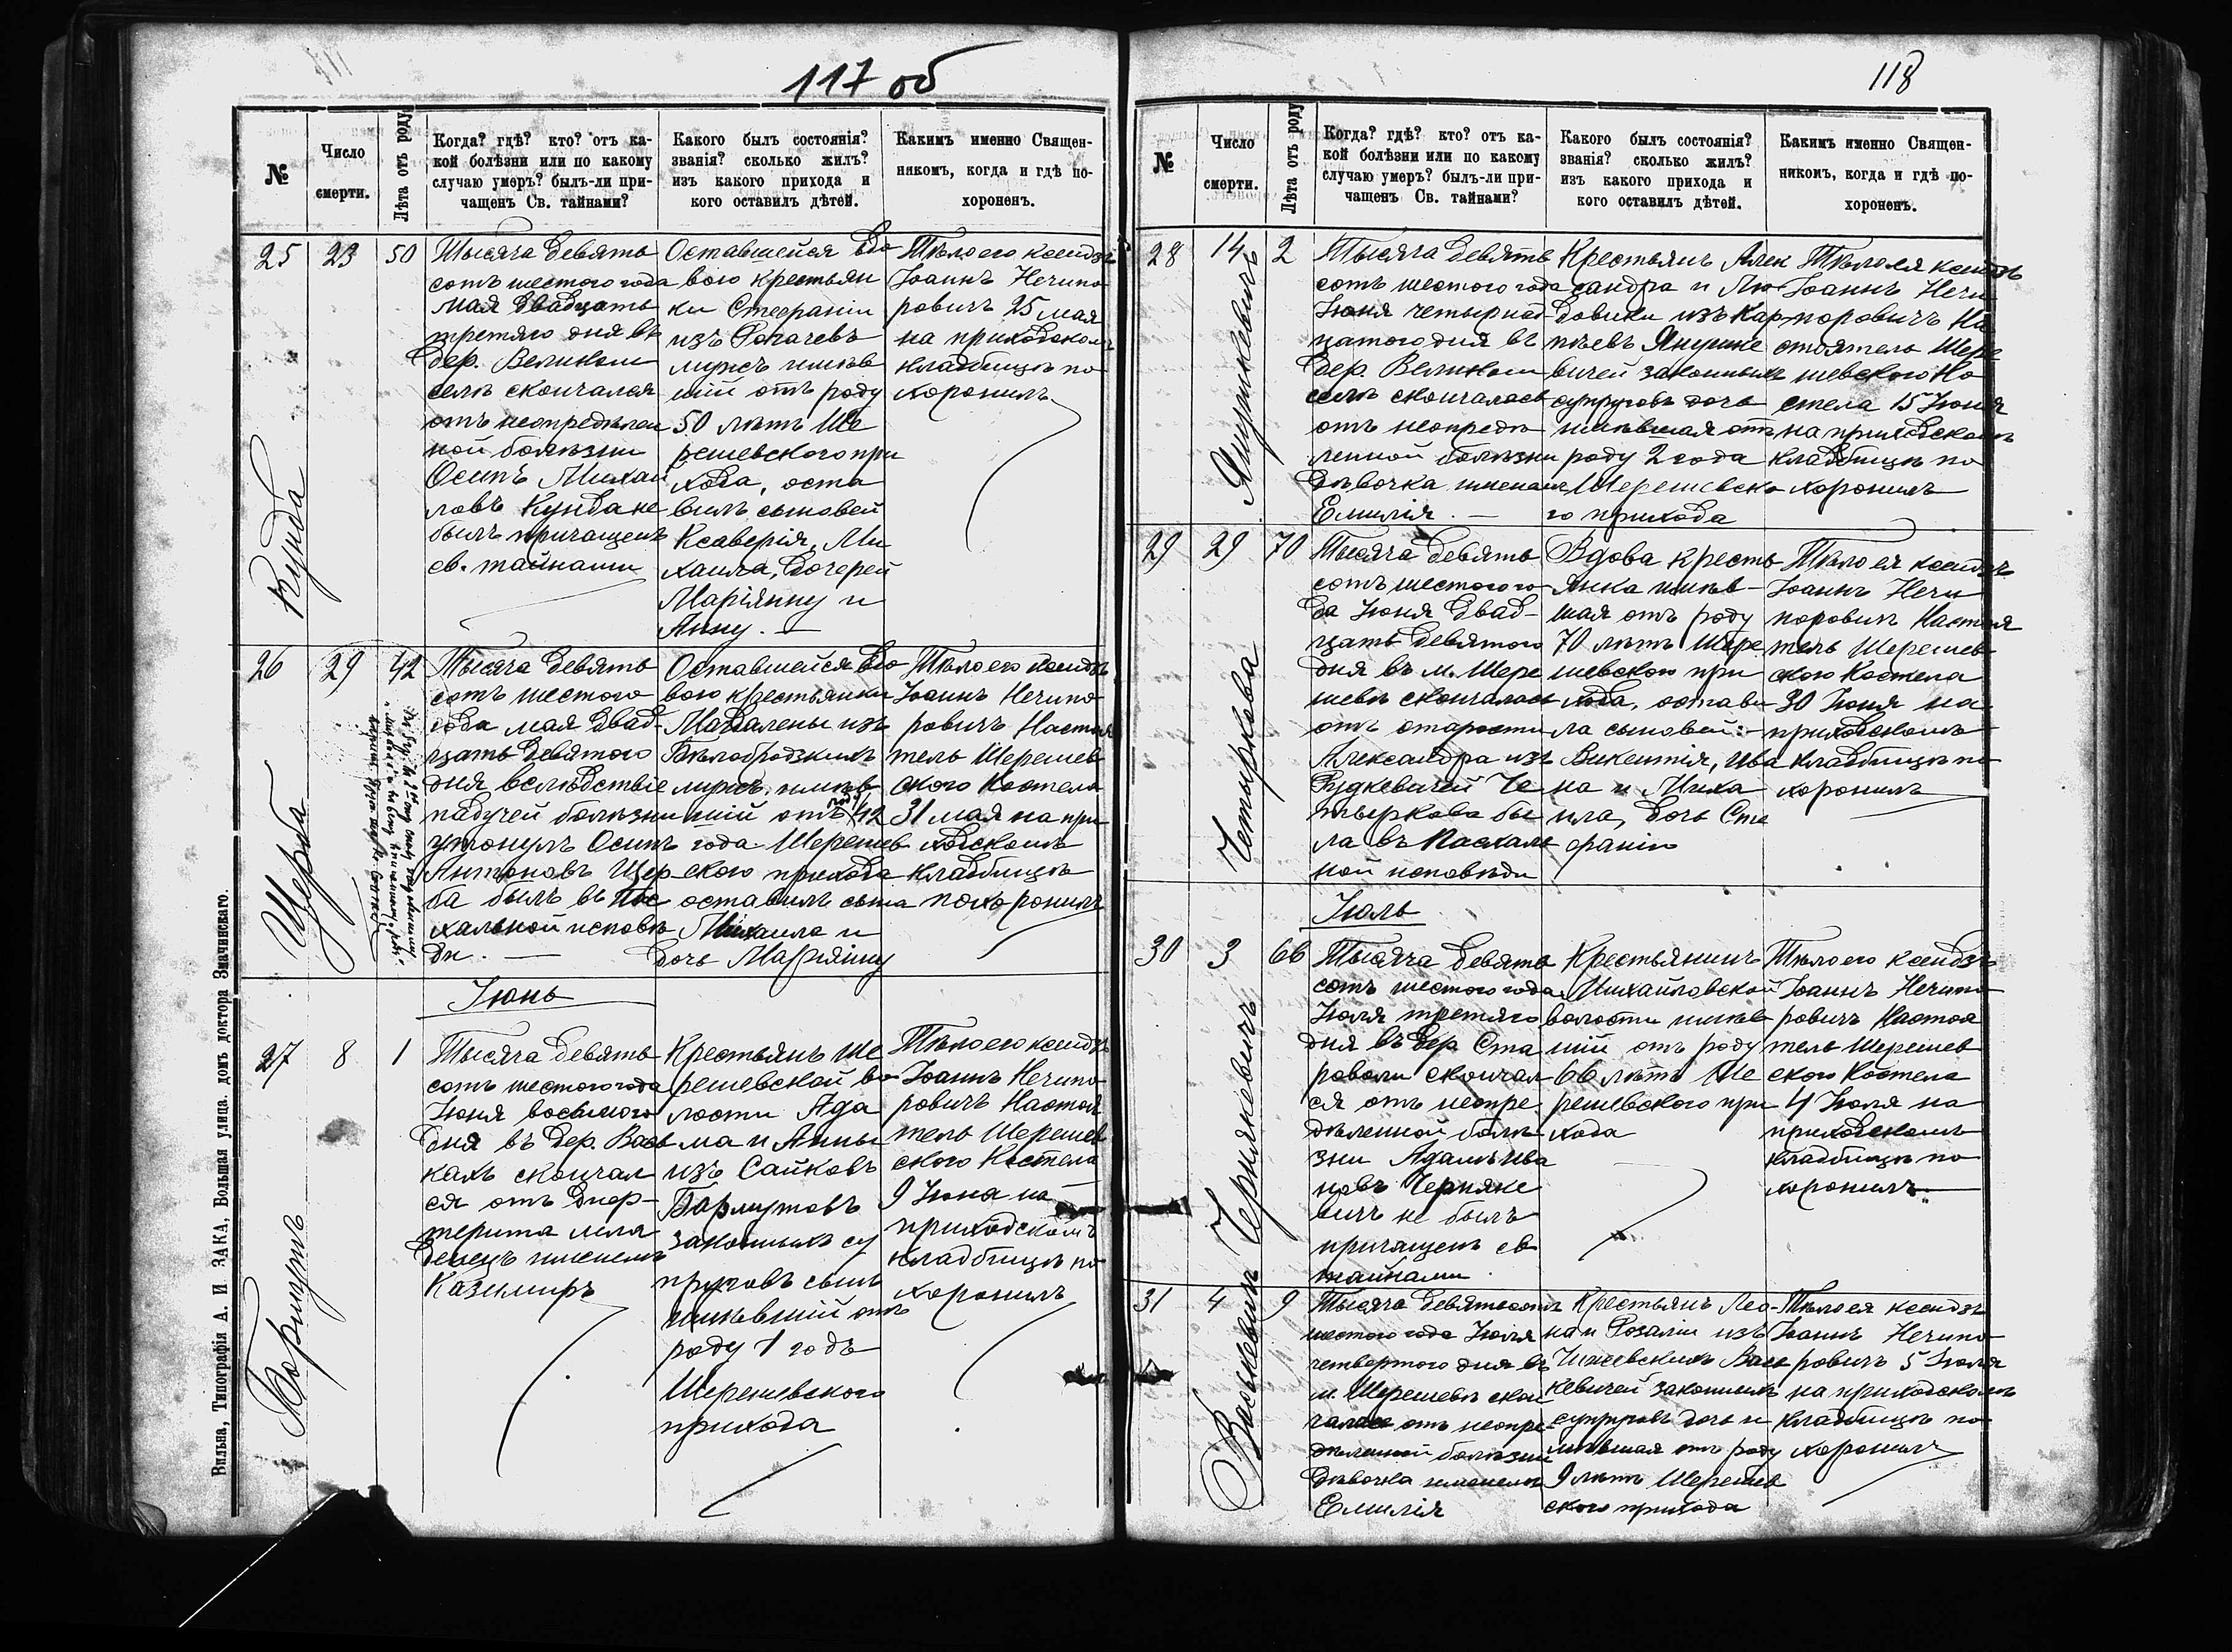 117 об
№
Число
смерти.
Лѣта отъ роду
Когда? гдѣ? кто? отъ ка-
кой болѣзни или по какому
случаю умеръ? былъ-ли при-
чащенъ Св. тайнами?
Какого былъ состоянія?
званія? сколько жилъ?
изъ какого прихода и
кого оставилъ дѣтей.
Какимъ именно Священ-
никомъ, когда и гдѣ по-
хороненъ.
25
23
50
Кунда
Тысяча девять
сотъ шестого года
мая двадцать
третяго дня въ
дер. Великом
селѣ скончался
отъ неопредѣлен
ной болѣзни
Осипъ Михаи
ловъ Кунда не
былъ причащенъ
св. тайнами
Оставшейся вдо
вою крестьян
ки Стефаніи
изъ Рогачевъ
мужъ имѣв
шій отъ роду
50 лѣтъ Ше
решевского при
хода, оста
вилъ сыновей
Ксаверія, Ми
хаила, дочерей
Маріянну и
Анну. —
Тѣло его ксендзъ
Іоаннъ Нечипо
ровичъ 25 мая
на приходскомъ
кладбищѣ по
хоронилъ
26
29
42
Щерба
Тысяча девять
сотъ шестого
года мая двад-
цать девятого
дня вслѣдствіе
падучей болѣзни
утонулъ Осипъ
Антоновъ Щер
ба былъ въ Пас
хальной исповѣ
ди. —
Оставшейся вдо
вою крестьянки
Магдалены изъ
Бѣлобродзкихъ
мужъ имѣв
шій отъ роду 42
года Шерешев
ского прихода
оставилъ сына
Михаила и
дочь Маріянну
Тѣло его ксендзъ
Іоаннъ Нечипо
ровичъ Настоя
тель Шерешев
ского Костела
31 мая на при
ходскомъ
кладбищѣ
похоронилъ
Іюнь
27
8
1
Бармутъ
Тысяча девять
сотъ шестого года
Іюня восьмого
дня въ дер. Вась
кахъ скончал
ся отъ диф-
терита мла
денецъ именемъ
Казимиръ
Крестьянъ Ше
решевской во
лости Ада
ма и Анны
изъ Сайковъ
Бармутовъ
законныхъ су
пруговъ сынъ
имѣвшій отъ
роду 1 годъ
Шерешевского
прихода
Тѣло его ксендзъ
Іоаннъ Нечипо
ровичъ Настоя
тель Шерешев
ского Костела
9 Іюня на
приходскомъ
кладбищѣ по
хоронилъ
Вильна, Типографія А. И ЗАКА, Большая улица. домъ доктора Змачинскаго.
118
№
Число
смерти.
Лѣта отъ роду
Когда? гдѣ? кто? отъ ка-
кой болѣзни или по какому
случаю умеръ? былъ-ли при-
чащенъ Св. тайнами?
Какого былъ состоянія?
званія? сколько жилъ?
изъ какого прихода и
кого оставилъ дѣтей.
Какимъ именно Священ-
никомъ, когда и гдѣ по-
хороненъ.
28
14
2
Янушкевичъ
Тысяча девять
сотъ шестого года
Іюня четырнад
цатого дня въ
дер. Великом
селѣ скончалась
отъ неопредѣ
ленной болѣзни
дѣвочка именемъ
Емилія. —
Крестьянъ Алек
сандра и Лю
довики изъ Кар
пѣевъ Янушке
вичей законныхъ
супруговъ дочь
имѣвшая отъ
роду 2 года
Шерешевско
го прихода
Тѣло ея ксендзъ
Іоаннъ Нечи
поровичъ На
стоятель Шере
шевского Ко
стела 15 Іюня
на приходскомъ
кладбищѣ по
хоронилъ
29
29
70
Четыркова
Тысяча девять
сотъ шестого го
да Іюня двад-
цать девятого
дня въ м. Шере
шевѣ скончалась
отъ старости
Александра изъ
Рудкевичей Че
тыркова бы
ла въ Пасхаль
ной исповѣди
Вдова кресть
янка имѣв-
шая отъ роду
70 лѣтъ Шере
шевского при
хода, остави
ла сыновей:
Викентія, Ива
на и Миха
ила, дочь Сте
фанію
Тѣло ея ксендзъ
Іоаннъ Нечи
поровичъ Настоя
тель Шерешев
ского Костела
30 Іюня на
приходскомъ
кладбищѣ по
хоронилъ
Іюль
30
3
66
Чернякевичъ
Тысяча девять
сотъ шестого года
Іюля третяго
дня въ дер Ста
роволи скончал
ся отъ неопре
дѣленной болѣ
зни Адамъ Ива
новъ Черняке
вичъ не былъ
причащенъ св
тайнами
Крестьянинъ
Михайловской
волости имѣв
шій отъ роду
66 лѣтъ Ше
решевского при
хода
Тѣло его ксендзъ
Іоаннъ Нечипо
ровичъ Настоя
тель Шерешев
ского Костела
4 Іюля на
приходскомъ
кладбищѣ по
хоронилъ.
31
4
9
Васькевичъ
Тысяча девятьсотъ
шестого года Іюля
четвертого дня въ
м. Шерешевѣ скон
чалась отъ неопре-
дѣленной болѣзни
дѣвочка именемъ
Емилія
Крестьянъ Лео-
на и Розаліи изъ
Чижевскихъ Вась
кевичей законныхъ
супруговъ дочь и
мѣвшая отъ роду
9 лѣтъ Шерешев
ского прихода
Тѣло ея ксендзъ
Іоаннъ Нечипо
ровичъ 5 Іюля
на приходскомъ
кладбищѣ по
хоронилъ